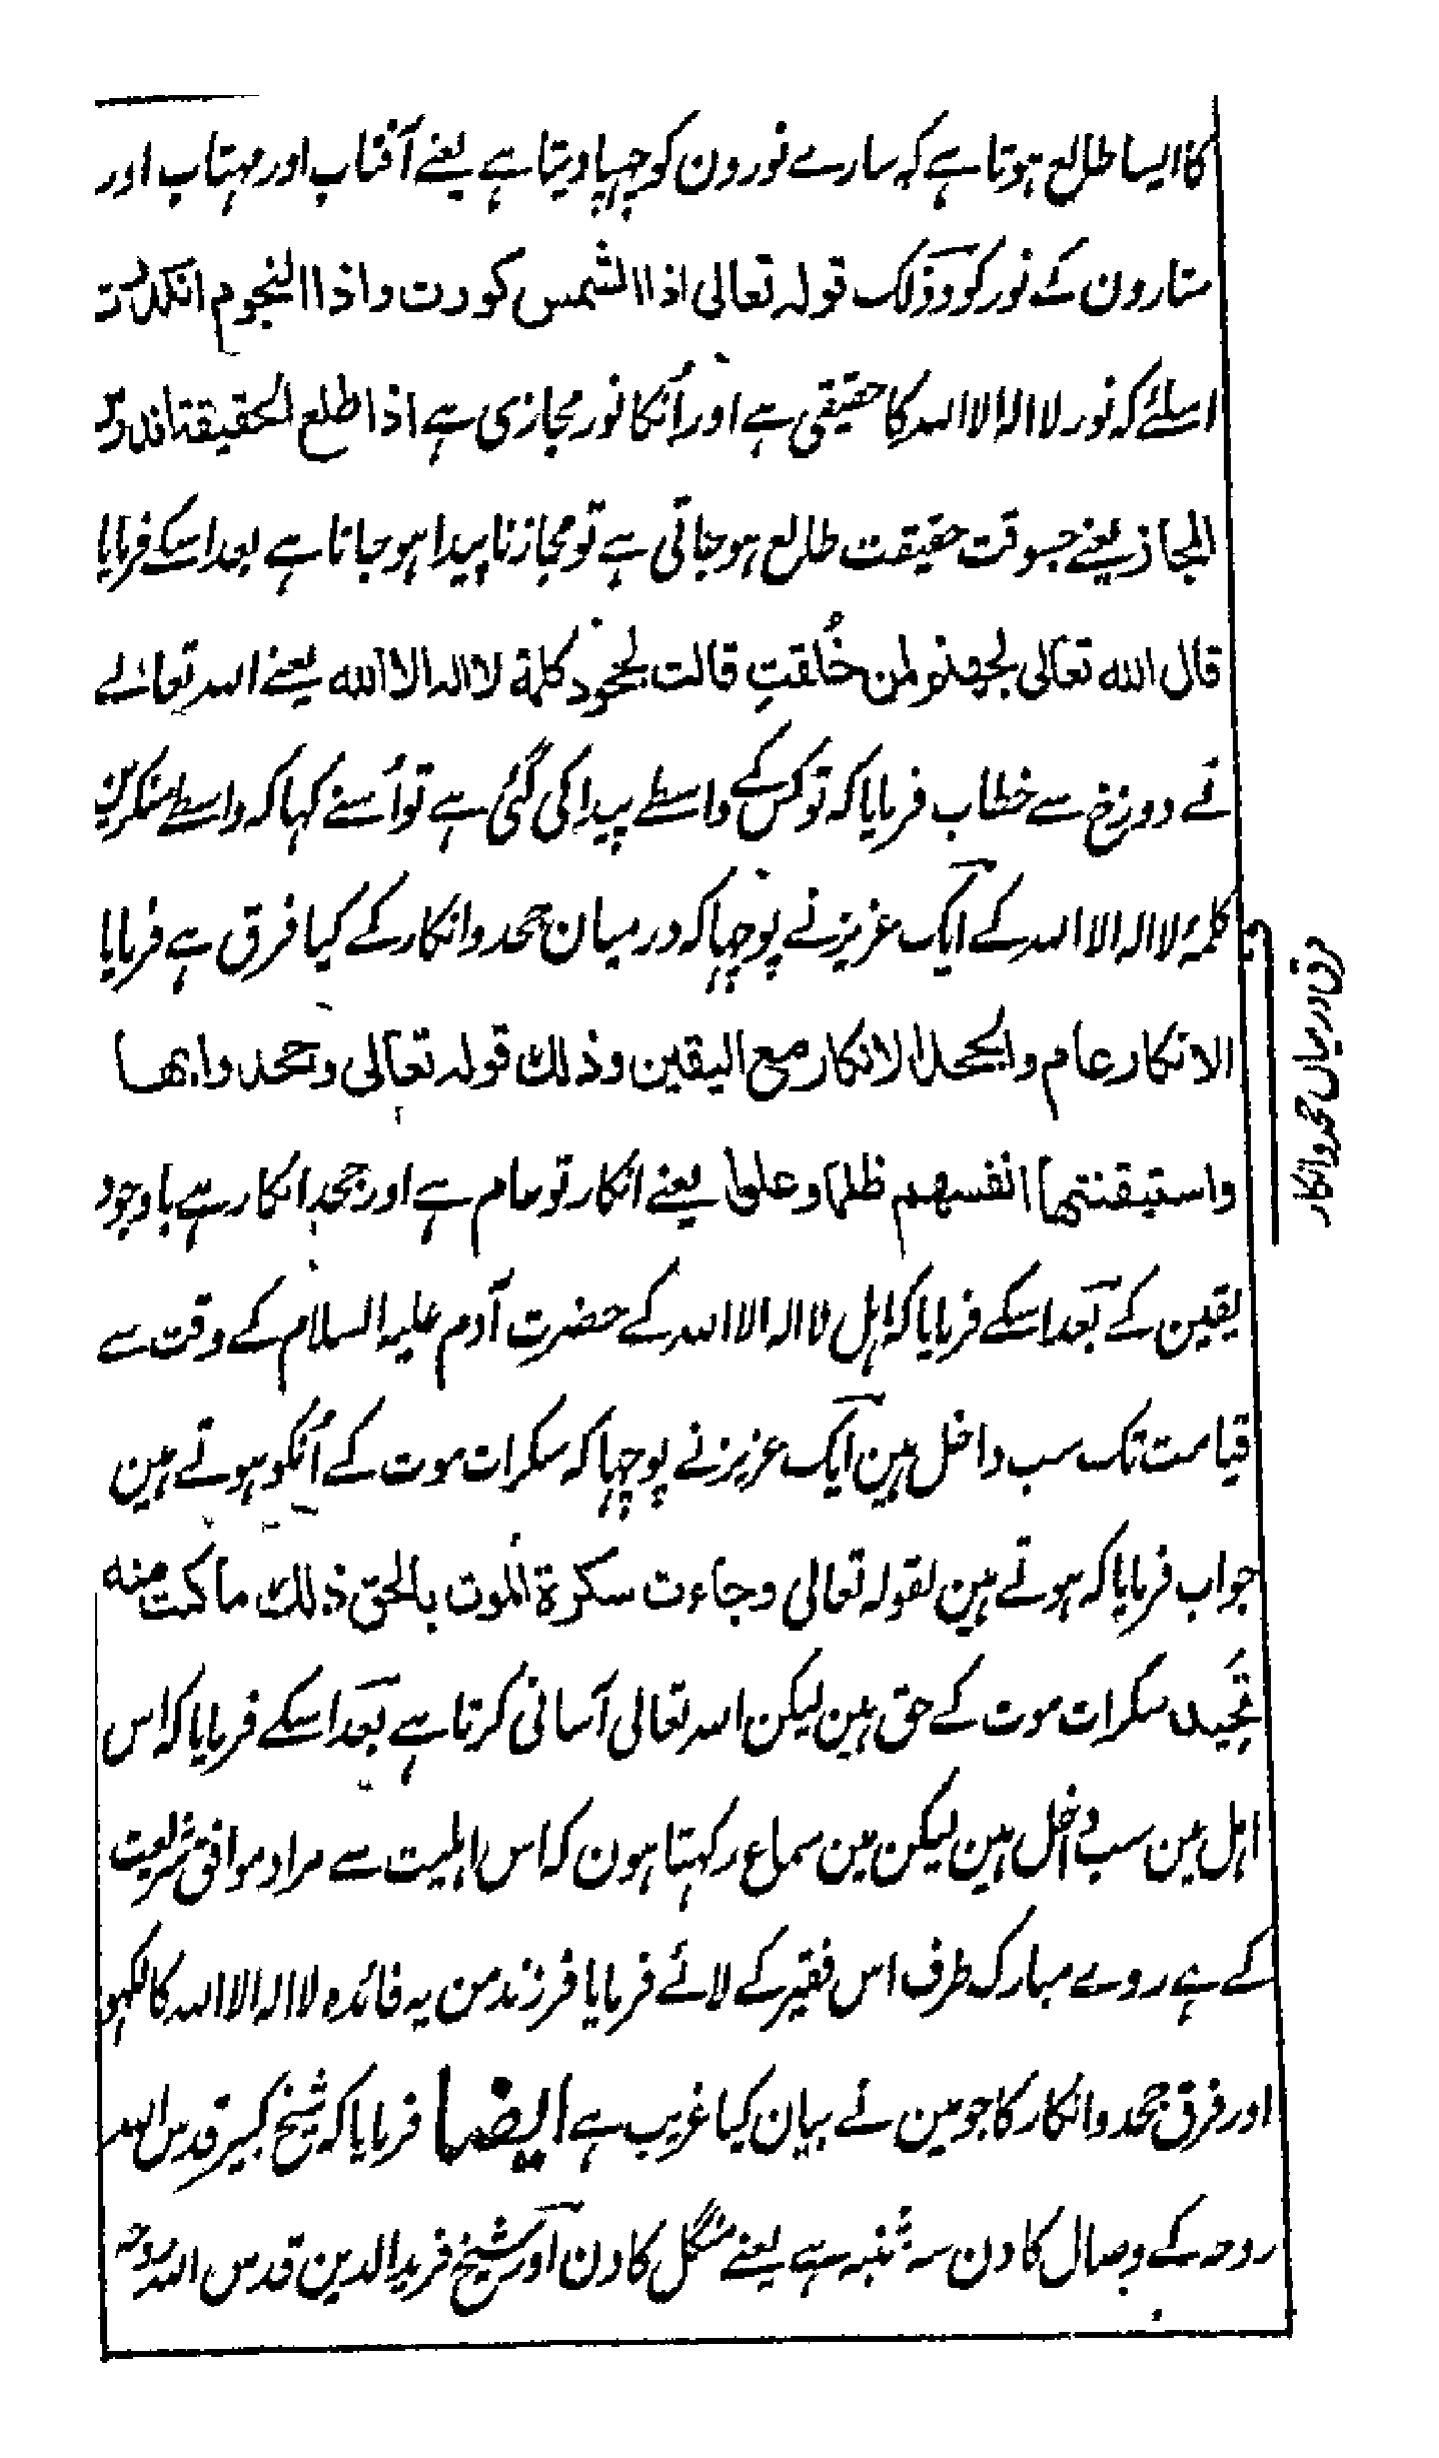 کا ایسا طالع ہوتا ہے کہ سارے نورون کو چہپا دیتا ہے یعنے آفتاب اور مہتاب اور
ستارون کے نور کو وذلک قولہ تعالی اذا الشمس کورت واذا النجوم انکدرت
اسلئے کہ نور لا الہ الا اللہ کا حقیقی ہے اور اُنکا نور مجازی ہے اذا طلع الحقیقۃ
المجاز یعنے جسوقت حقیقت طالع ہو جاتی ہے تو مجاز ناپیدا ہو جاتا ہے بعد اسکے فرمایا
قال اللہ تعالی لجھنم لمن خُلقتِ قالت لجحود کلمة لا الہ الا اللہ یعنے اللہ تعالے
نے دوزخ سے خطاب فرمایا کہ تو کس کے واسطے پیدا کی گئی ہے تو اُسنے کہا کہ واسطے منکرین
کلمۂ لا الہ الا اللہ کے ایک عزیز نے پوچہا کہ درمیان جحد و انکار کے کیا فرق ہے فرمایا
الانکار عام والجحد الانکار مع الیقین وذلک قولہ تعالی وجحدوا بھا
واستیقنتھا انفسھم ظلما وعلوا یعنے انکار تو عام ہے اور جحد انکار ہے باوجود
یقین کے بعد اسکے فرمایا کہ اہل لا الہ الا اللہ کے حضرت آدم علیہ السلام کے وقت سے
قیامت تک سب داخل ہین ایک عزیز نے پوچہا کہ سکرات موت کے اُنکو ہوتے ہین
جواب فرمایا کہ ہوتے ہین لقولہ تعالی وجاءت سکرة الموت بالحق ذلک ما کنت منه
تَحِید سکرات موت کے حق ہین لیکن اللہ تعالی آسانی کرتا ہے بعد اسکے فرمایا کہ اس
اہل مین سب داخل ہین لیکن مین سماع رکہتا ہون کہ اس اہلیت سے مراد موافق شریعت
کے ہے روے مبارک طرف اس فقیر کے لائے فرمایا فرزند من یہ فائدہ لا الہ الا اللہ کا لکہو
اور فرق جحد و انکار کا جو مین نے بیان کیا غریب ہے ایضا فرمایا کہ شیخ کبیر قدس اللہ
روحہ کے وصال کا دن سہ شنبہ ہے یعنے منگل کا دن اور شیخ فرید الدین قدس اللہ روحہ
فرق درمیان جحد و انکار